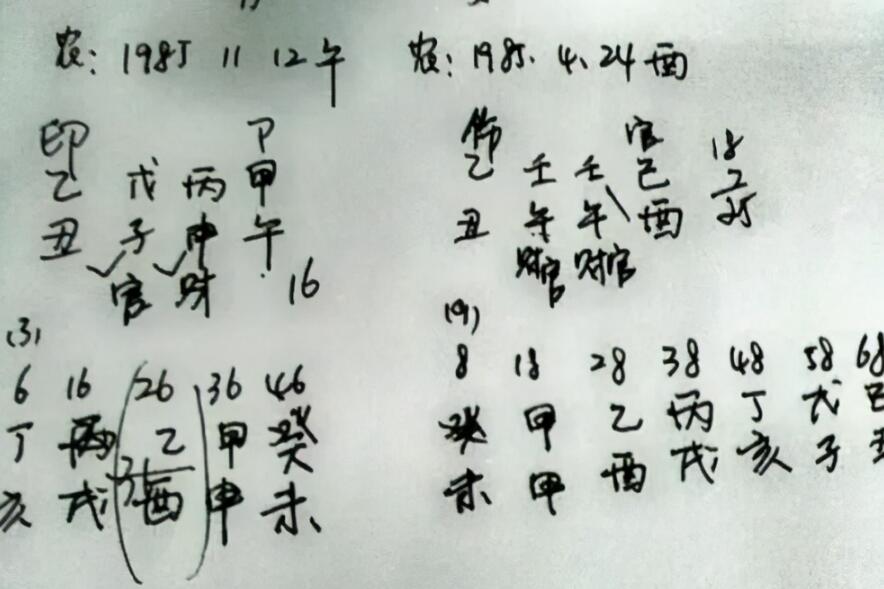 农: 1985 11 12午
印 卩
乙 戊 丙 甲
丑 子 申 午
官 财 16
(3)
6 16 26 36 46
丁 丙 乙 甲 癸
亥 戌 酉 申 未
农: 1985. 4. 24 酉
伤 官
乙 壬 壬 己
丑 午 午 酉
财官 财官
18
7
25
(9)
8 18 28 38 48 58 68
癸 甲 乙 丙 丁 戊 己
未 甲 酉 戌 亥 子 丑